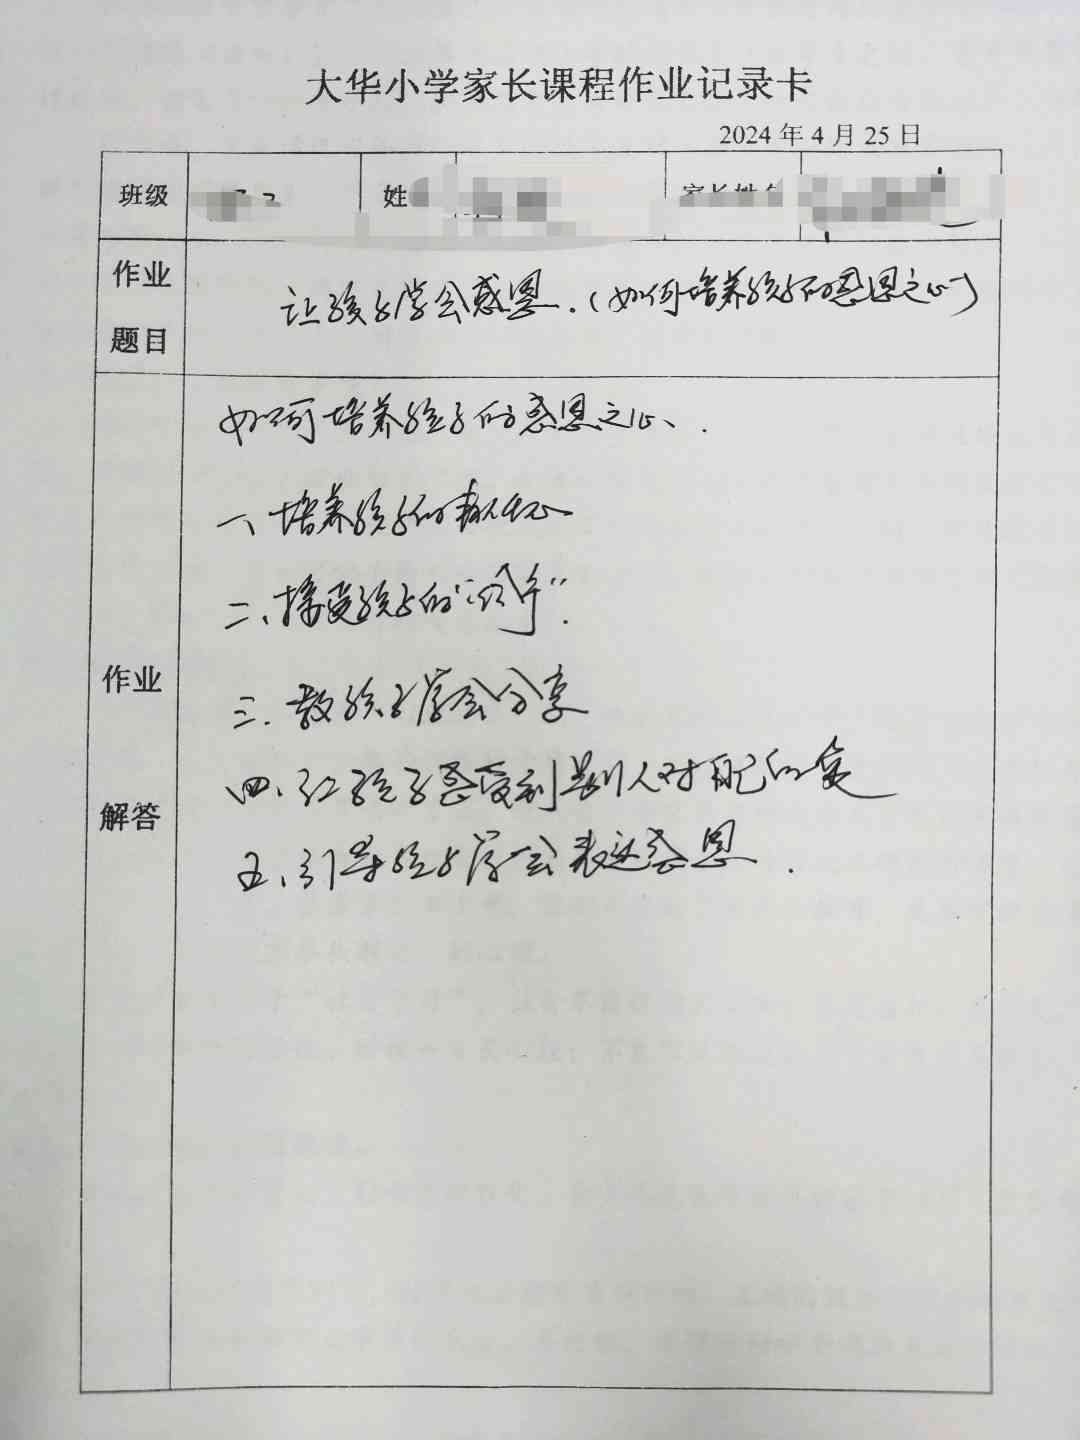 大华小学家长课程作业记录卡
2024年4月25日
班级 姓
作业题目 让孩子学会感恩.(如何培养孩子的感恩之心)
作业解答
如何培养孩子的感恩之心.
一、培养孩子的
二、接受孩子的
三.教孩子学会分享
四、让孩子感受到别人对自己的爱
五、引导孩子学会表达感恩.